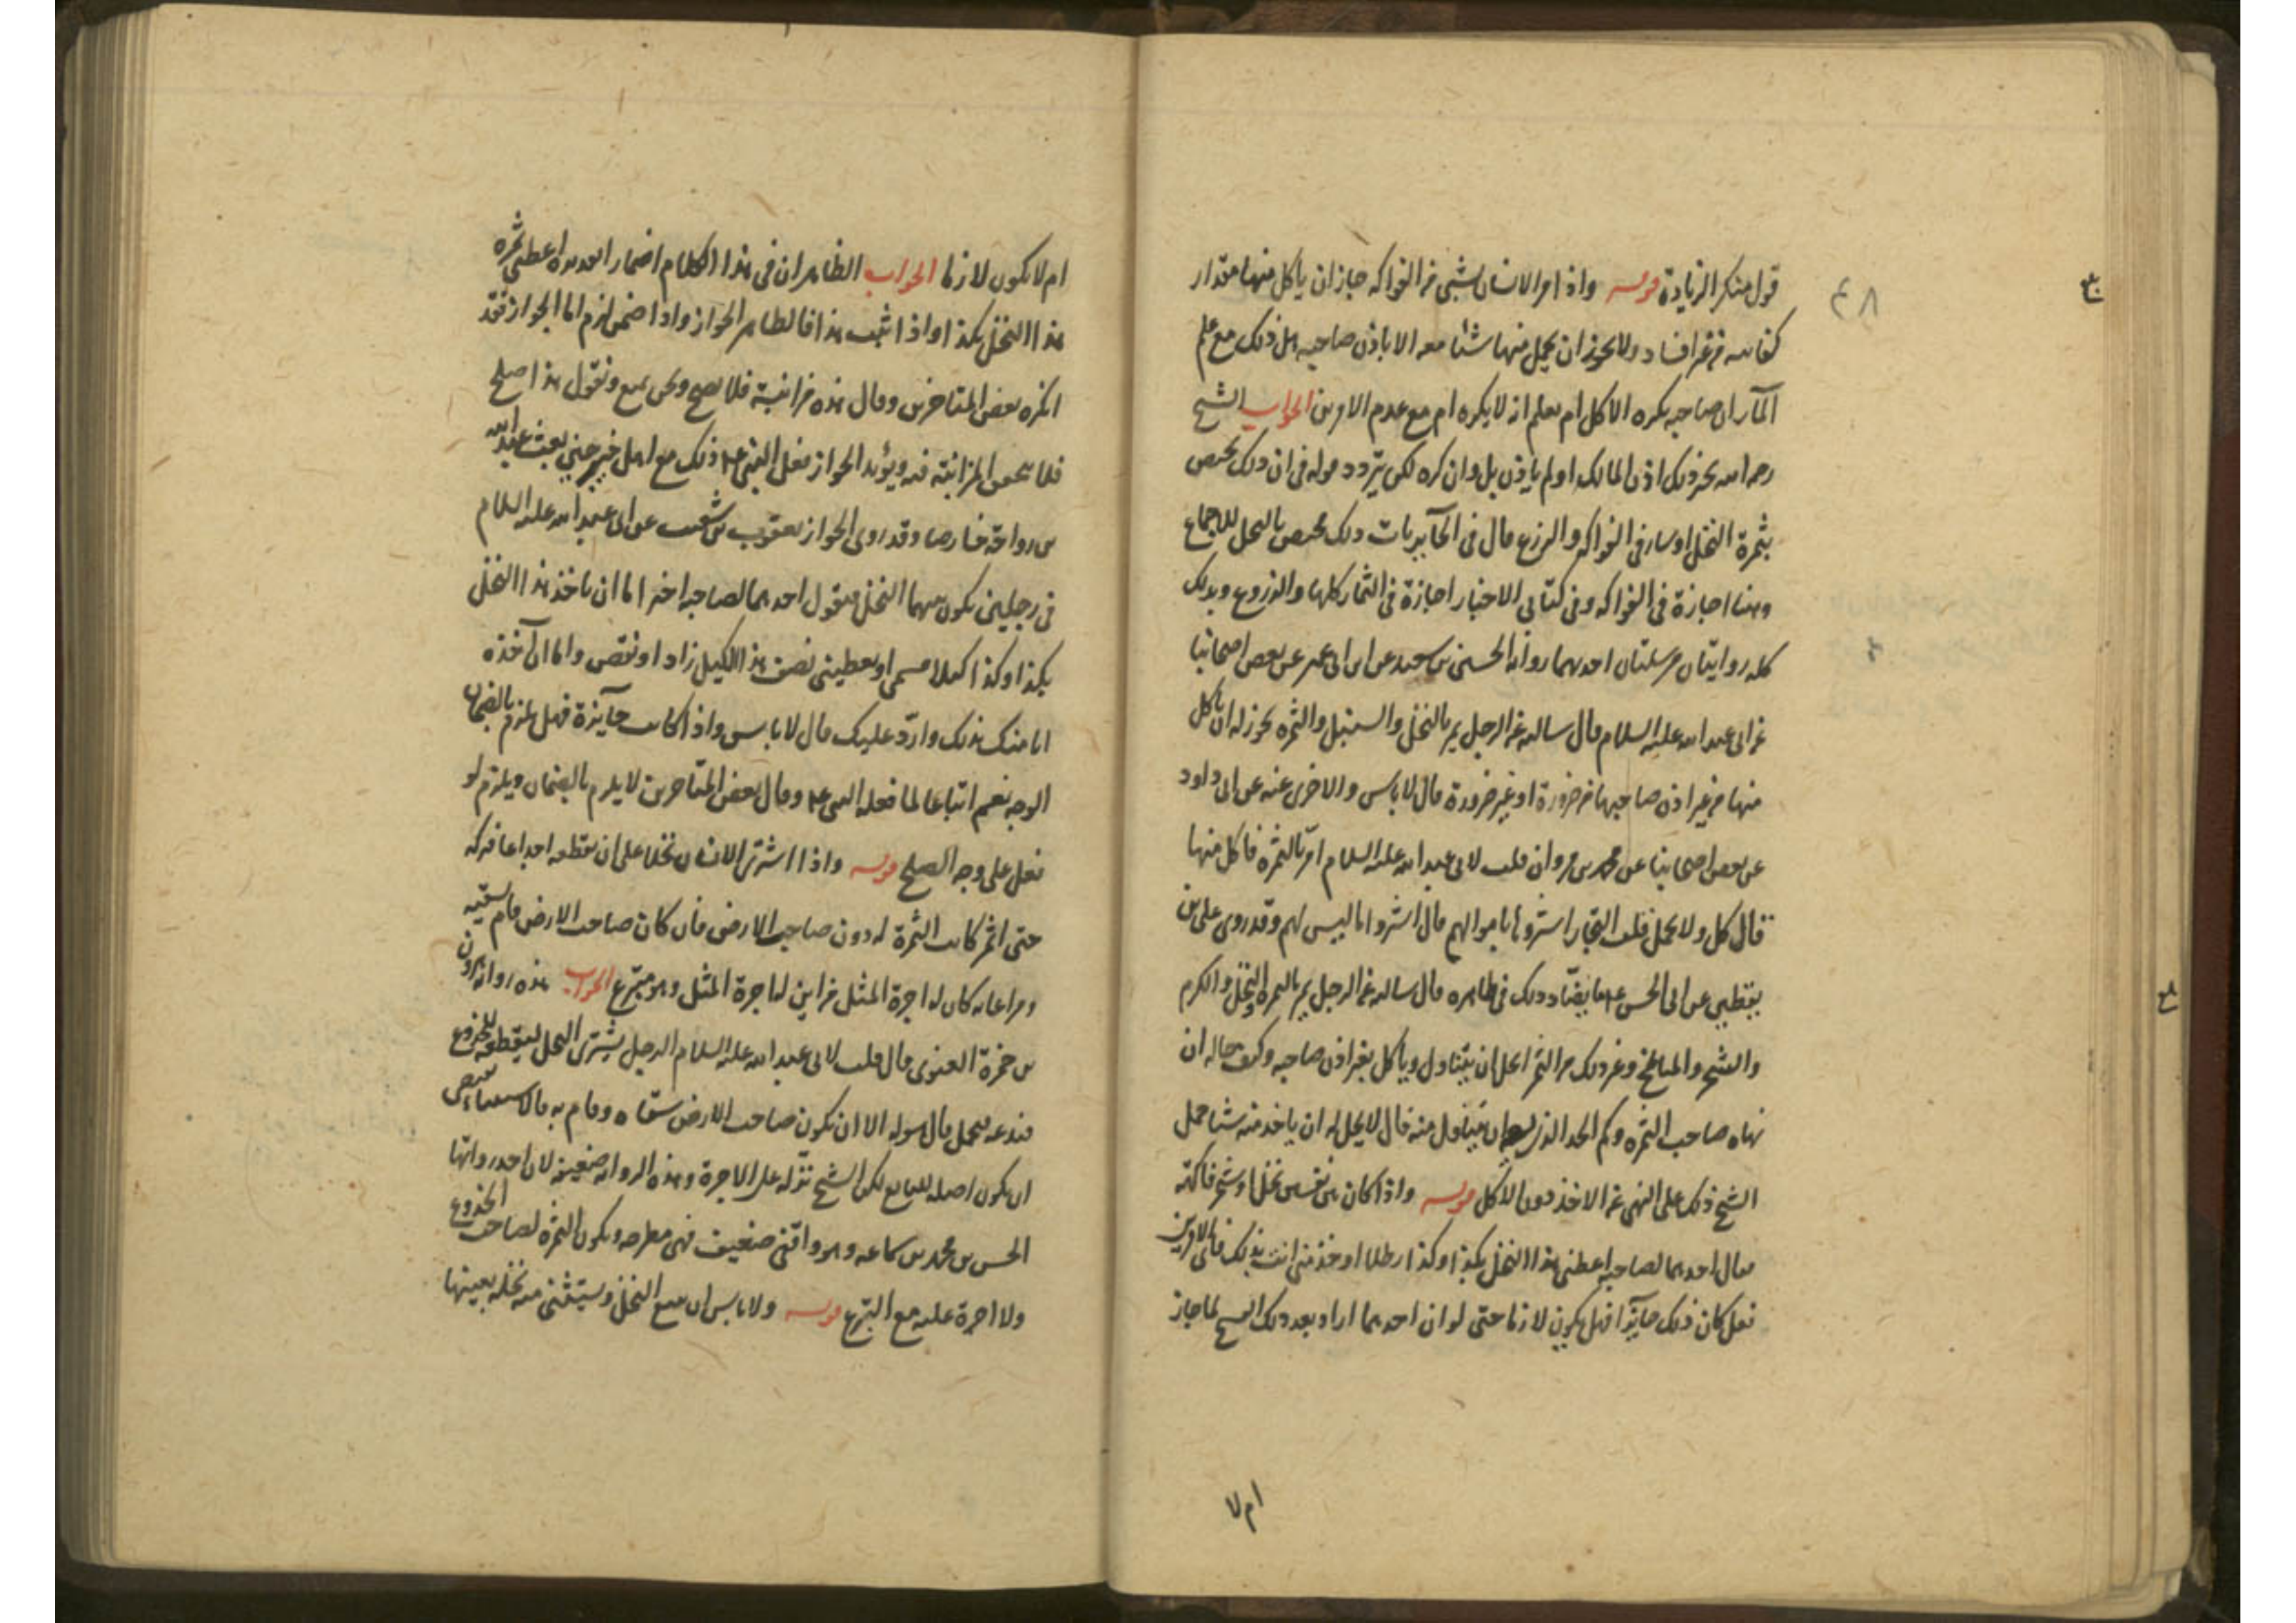 قول منكر الزيادة قوله واذا مر الانسان بشئ من الفواكه جاز ان ياكل منها مقدار
كفايته من غير افساد ولا يجوز ان يحمل منها شيئا معه الا باذن صاحبه هل ذلك مع علم
المار ان صاحبه يكره الاكل ام يعلم انه لا يكره ام مع عدم الامرين الجواب الشيخ
رحمه الله يجيز ذلك اذن المالك او لم ياذن بل وان كره لكن يتردد قوله في ان ذلك يختص
بثمرة النخل او سار في الفواكه والزرع قال في الحايريات ذلك مختص بالنخل للاجماع
وهنا اجازة في الفواكه وفي كتابي الاخبار اجازة في الثمار كلها والزروع وبذلك
كله روايتان مرسلتان احدهما رواية الحسين بن سعيد عن ابن ابي عمير عن بعض اصحابنا
عن ابي عبد الله عليه السلام قال سالته عن الرجل يمر بالنخل والسنبل والثمره يجوز له ان ياكل
منها من غير اذن صاحبها من ضرورة او غير ضرورة قال لا باس والاخرى عنه عن ابي داود
عن بعض اصحابنا عن محمد بن مروان قلت لابي عبد الله عليه السلام امر بالثمره فاكل منها
قال كل ولا تحمل قلت التجار اشتروها باموالهم قال اشتروا ما ليس لهم وقد روى علي بن
يقطين عن ابي الحسن ع ما يضاد ذلك في ظاهره قال سالته عن الرجل يمر بالثمره والنخل والكرم
والشجر والمباطخ وغير ذلك من الثمر ايحل ان يتناول وياكل بغير اذن صاحبه وكيف حاله ان
نهاه صاحب الثمره وكم الحد الذي يتناول منه قال لا يحل له ان ياخذ منه شيئا حمل
الشيخ ذلك على النهي عن الاخذ دون الاكل قوله واذا كان بين نفسين نخل او شجر فاكهة
فقال احدهما لصاحبه اعطني هذا النخل بكذا وكذا رطلا او خذ مني انت بذلك فاي الامرين
فعل كان ذلك جايزا فهل يكون لازما حتى لو ان احدهما اراد بعد ذلك الفسخ لما جاز
ام لا
٤٨
ام لا يكون لازما الجواب الظاهر ان في هذا الكلام اضمار اعطني ثمره
هذا النخل بكذا واذا ثبت هذا فالظاهر الجواز واذا ضمن لزم اما الجواز فقد
انكره بعض المتاخرين وقال هذه مزابنة فلا يصح ونحن نمنع ونقول هذا صلح
فلا تحقق المزابنة فيه ويؤيد الجواز فعل النبي ع ذلك مع اهل خيبر حين بعث عبد الله
بن رواحة خارصا وقد روى الجواز يعقوب بن شعيب عن ابي عبد الله عليه السلام
في رجلين يكون بينهما النخل فيقول احدهما لصاحبه اختر اما ان تاخذ هذا النخل
بكذا وكذا كيلا مسمى او تعطيني نصف هذا الكيل زاد او نقص واما ان آخذه
انا منك بذلك وارد عليك قال لا باس واذا كانت جايزة فهل يلزم بالضمان
الوجه نعم اتباعا لما فعله النبي ع وقال بعض المتاخرين لا يلزم بالضمان ويلزم لو
فعل على وجه الصلح قوله واذا اشترى الانسان نخلا على ان يقطعه اجذاعا فتركه
حتى اثمر كانت الثمرة له دون صاحب الارض فان كان صاحب الارض قام بسقيه
ومراعاته كان له اجرة المثل من اين له اجرة المثل وهو متبرع الجواب هذه رواية هرون
بن حمزة الغنوي قال قلت لابي عبد الله عليه السلام الرجل يشتري النخل ليقطعه للجذوع
فيدعه فيحمل قال هو له الا ان يكون صاحب الارض سقاه وقام به فالاستثناء يقتضي
ان يكون اصله للبايع لكن الشيخ نزله على الاجرة وهذه الرواية ضعيفة لان احد رواتها
الحسن بن محمد بن سماعه وهو واقفي ضعيف فهي مطرحه ويكون الثمره لصاحب الجذوع
ولا اجرة عليه مع التبرع قوله ولا باس ان يبيع النخل ويستثني منه نخله بعينها